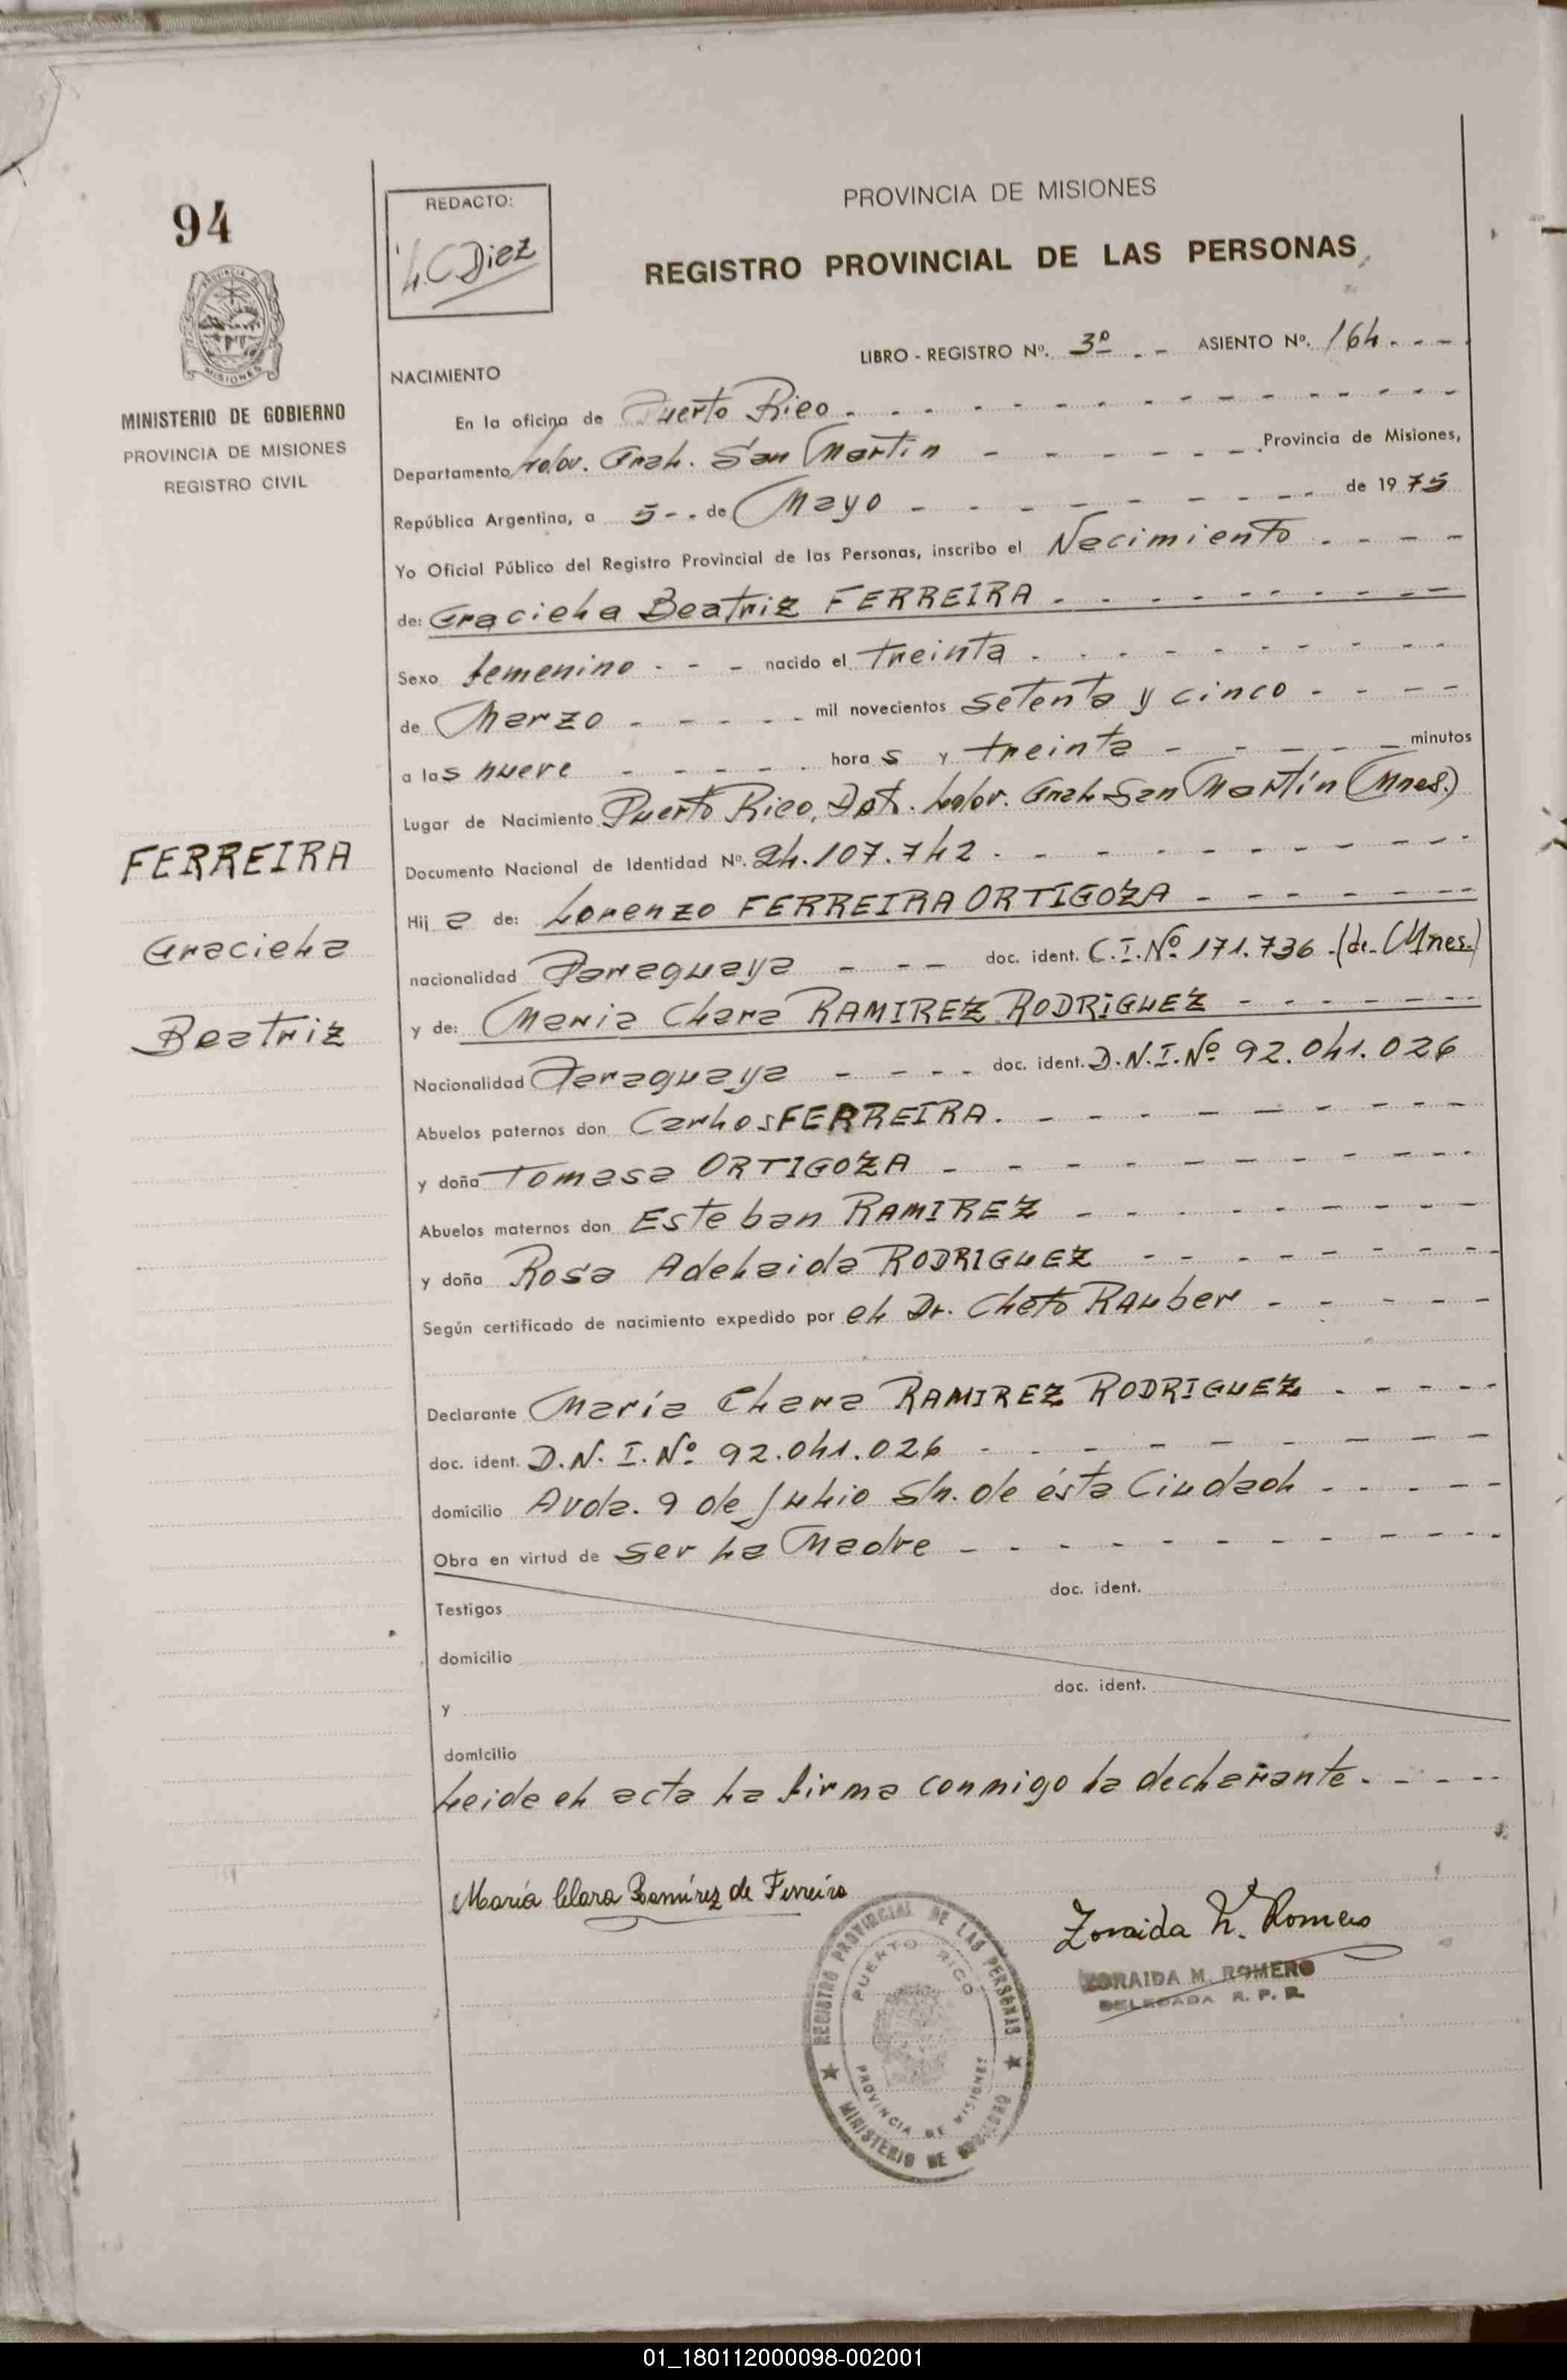 94
REDACTO:
L.C Diez
PROVINCIA DE MISIONES
REGISTRO PROVINCIAL DE LAS PERSONAS
PROVINCIA DE
MISIONES
MINISTERIO DE GOBIERNO
PROVINCIA DE MISIONES
REGISTRO CIVIL
LIBRO - REGISTRO Nº. 3º - - ASIENTO Nº. 164 - - - -
NACIMIENTO
En la oficina de Puerto Rico
Departamento Ldor. Gral. San Martín - - - - - - Provincia de Misiones,
República Argentina, a 5 - - de Mayo - - - - - - - - de 1975
Yo Oficial Público del Registro Provincial de las Personas, inscribo el Nacimiento - - - -
de: Graciela Beatriz FERREIRA - - - - - - - - -
Sexo femenino - - - nacido el treinta - - - - - - - - -
de Marzo - - - - - mil novecientos setenta y cinco - - - -
a las nueve - - - - - horas y treinta - - - - - minutos
Lugar de Nacimiento Puerto Rico, Dpt. Ldor. Gral San Martín (Mnes.)
Documento Nacional de Identidad Nº. 24.107.742 - - - - - - - - -
FERREIRA
Graciela
Beatriz
Hija de: Lorenzo FERREIRA ORTIGOZA - - - - - - -
nacionalidad Paraguaya - - - - doc. ident. C.I.Nº 171.736 - (de Mnes.)
y de: Maria Clara RAMIREZ RODRIGUEZ - - - - - - -
Nacionalidad Paraguaya - - - - doc. ident. D.N.I.Nº 92.041.026
Abuelos paternos don Carlos FERREIRA. - - - - - - - - -
y doña Tomasa ORTIGOZA - - - - - - - - - -
Abuelos maternos don Esteban RAMIREZ - - - - - - - -
y doña Rosa Adelaida RODRIGUEZ - - - - - - - -
Según certificado de nacimiento expedido por el Dr. Cleto Rauber - - - - -
Declarante María Clara RAMIREZ RODRIGUEZ - - - - -
doc. ident. D.N.I.Nº 92.041.026 - - - - - - - - -
domicilio Avda. 9 de Julio S/n. de ésta Ciudad - - - - -
Obra en virtud de ser la Madre - - - - - - - - - -
doc. ident.
Testigos
domicilio
doc. ident.
y
domicilio
Leida el acta la firma conmigo la declarante. - - - - -
María Clara Ramírez de Ferreira
Zoraida M. Romero
ZORAIDA M. ROMERO
DELEGADA R. P. P.
REGISTRO PROVINCIAL DE LAS PERSONAS
PUERTO RICO
PROVINCIA DE MISIONES
MINISTERIO DE GOBIERNO
01_180112000098-002001